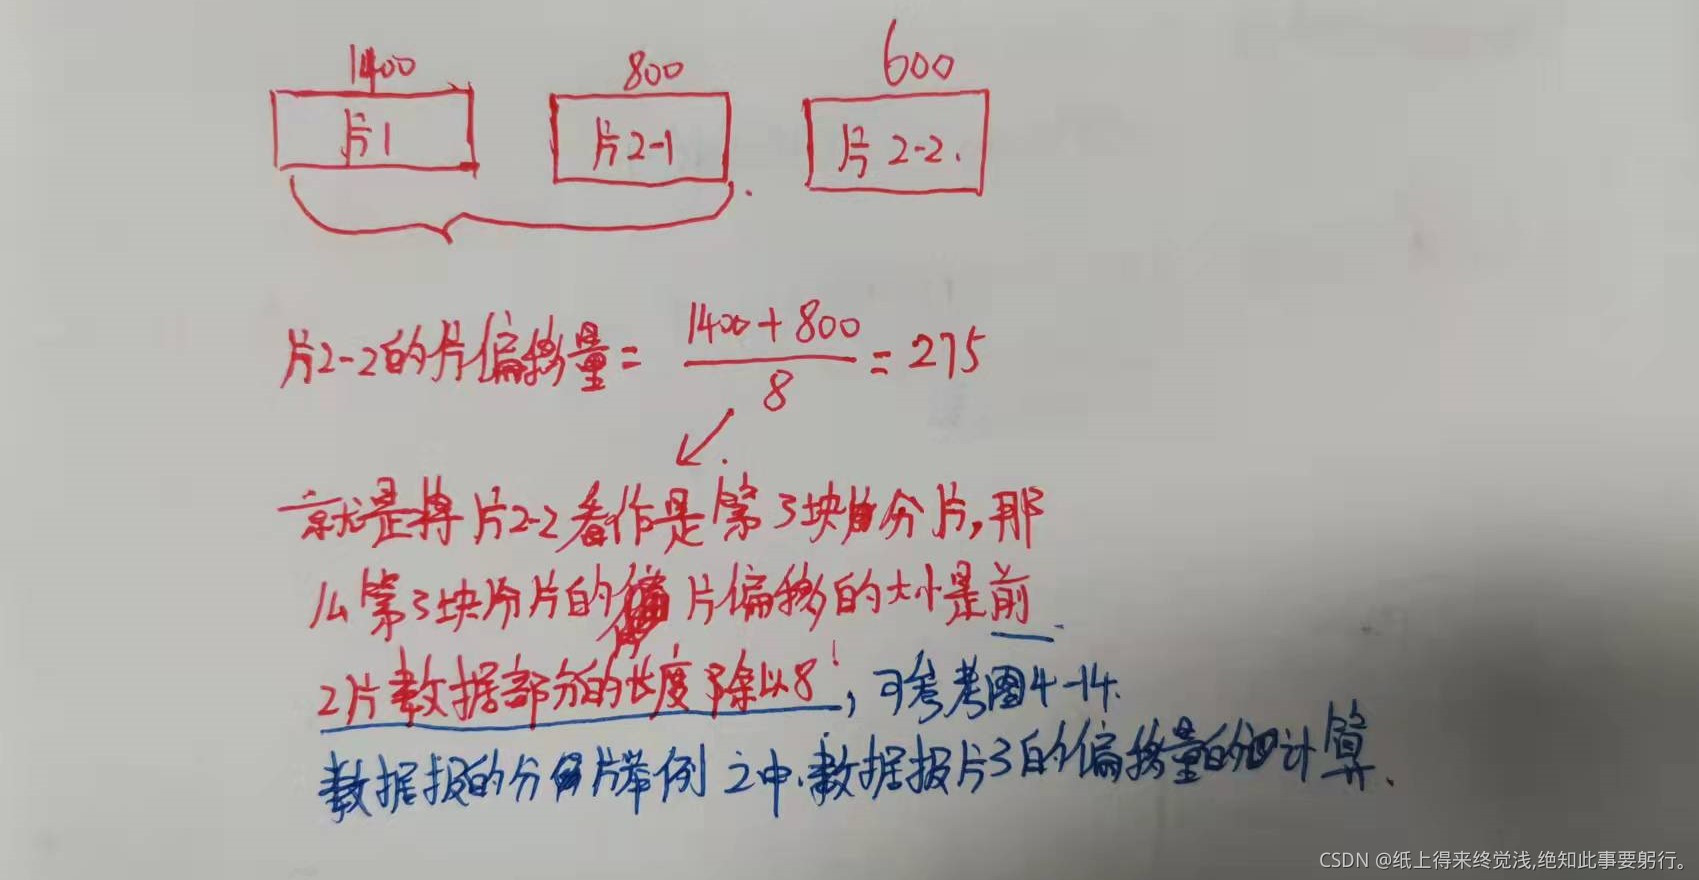 1400 800 600
片1 片2-1 片2-2.
片2-2的片偏移量 = 1400+800 / 8 = 275
就是将片2-2看作是第3块的分片,那
么第3块分片的 片偏移的大小是前
2片数据部分的长度除以8!,可参考图4-14.
数据报的分片举例之中.数据报片3的偏移量的计算.
CSDN @纸上得来终觉浅,绝知此事要躬行。